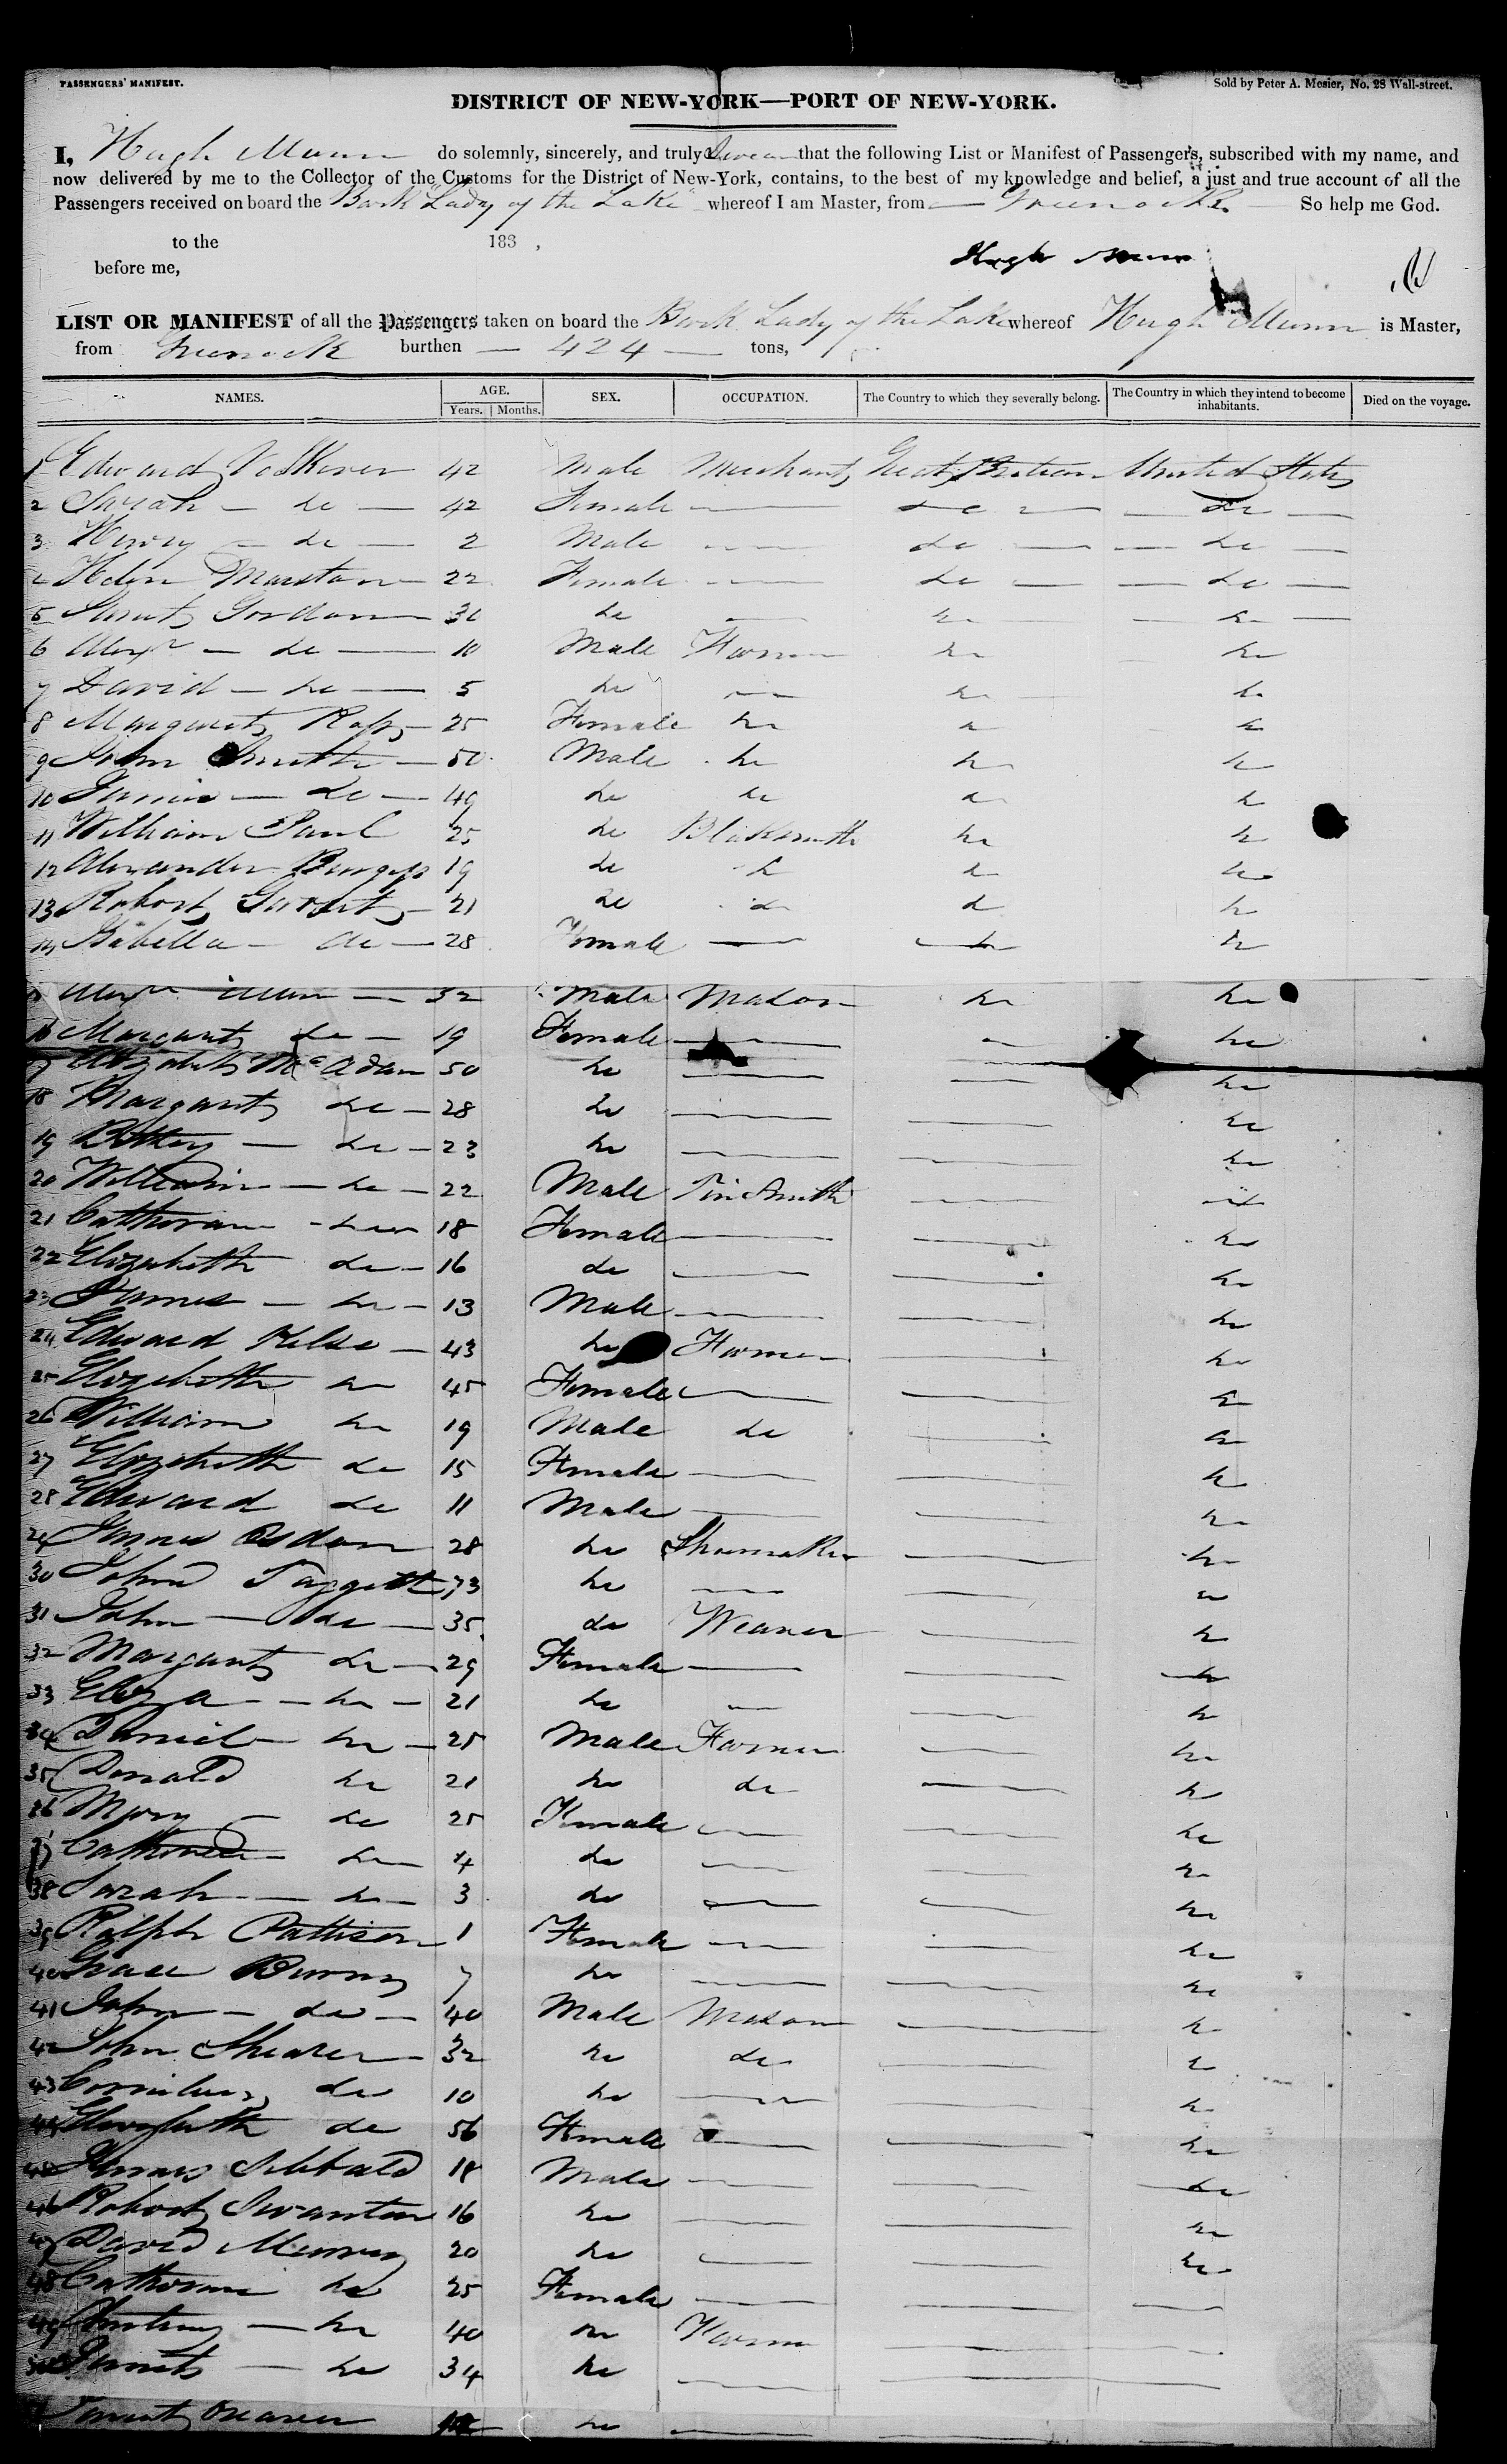 PASSENGERS' MANIFEST.
Sold by Peter A. Mesier, No. 28 Wall-street.
DISTRICT OF NEW-YORK—PORT OF NEW-YORK.
I, Hugh Munn do solemnly, sincerely, and truly swear that the following List or Manifest of Passengers, subscribed with my name, and
now delivered by me to the Collector of the Customs for the District of New-York, contains, to the best of my knowledge and belief, a just and true account of all the
Passengers received on board the Bark "Lady of the Lake" whereof I am Master, from Greenock So help me God.
to the 183 ,
before me,
Hugh Munn
LIST OR MANIFEST of all the Passengers taken on board the Bark Lady of the Lake whereof Hugh Munn is Master,
from Greenock burthen — 424 — tons,
NAMES. AGE. SEX. OCCUPATION. The Country to which they severally belong. The Country in which they intend to become inhabitants. Died on the voyage.
Years. Months.
1 Edward 42 Male Merchant Great Britain United States
2 Sarah — do — 42 Female — do — do —
3 Henry — do — 2 Male — do — do —
4 Helen Marston 22 Female — do — do —
5 Gordon do — do — do —
6 Alexr — do — 10 Male Farmer do do
7 David — do — 5 do — do do
8 Margaret Ross 25 Female do do do
9 John Smith — 50 Male do do do
10 — do — 49 do do do do
11 William Paul 25 do Blaksmith do do
12 Alexander Burgess 19 do do do do
13 Robert 21 do do do do
14 Isabella — do — 28 Female — do do
Alexr — 32 Male Mason do do
16 Margaret do — 19 Female — do
17 Elizabeth McAdam 50 do — do
18 Margaret do — 28 do — do
19 — do — 23 do — do
20 William — do — 22 Male Tin Smith — do
21 Catherine — do 18 Female — do
22 Elizabeth do — 16 do — do
23 James — do — 13 Male — do
24 Edward Kelso — 43 do Farmer — do
25 Elizabeth do 45 Female — do
26 William do 19 Male do — do
27 Elizabeth do 15 Female — do
28 Edward do 11 Male — do
29 James 28 do Shoemaker — do
30 John Taggett 73 do — do
31 John — do — 35 do Weaver — do
32 Margaret do — 29 Female — do
33 Eliza — do — 21 do — do
34 Daniel do — 25 Male Farmer — do
35 Donald do 21 do do — do
36 Mary — do 25 Female — do
37 Catherine do 14 do — do
38 Sarah — do — 3 do — do
39 Ralph Pattison 1 Female — do
40 Grace 7 do — do
41 John — do — 40 Male Mason — do
42 John Shearer 32 do do — do
43 do 10 do — do
44 Elizabeth do 56 Female — do
45 Sibbald 18 Male — do
46 Robert Swanton 16 do — do
47 David Murray 20 do — do
48 Catherine do 25 Female —
49 — do 40 do Farmer —
50 — do 34 do —
do —